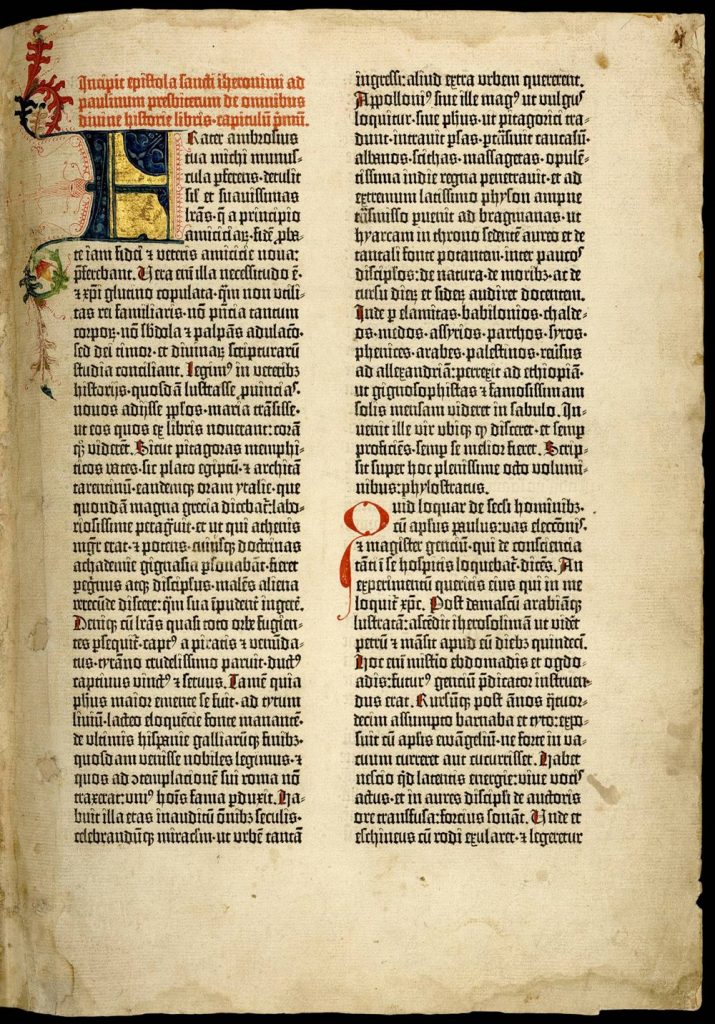 Incipit epistola sancti iheronimi ad
paulinum presbiterum de omnibus
divine historie libris·capitulū p̄mū.
Frater ambrosius
tua michi munus-
cula p̄ferens·detulit
sil̄ et suavissimas
lr̄as·q̄ a principio
amiciciaꝝ·fidē ꝓba-
te iam fidei ⁊ veteris amicicie nova:
p̄ferebant. Vera em̄ illa necessitudo ē·
⁊ xp̄i glutino copulata·q̄m non utili-
tas rei familiaris·nō pn̄cia tantum
corpoꝝ·nō sb̄dola ⁊ palpās adulacō·
sed dei timor·et divinaꝝ scripturarū
studia conciliant. Legimꝰ in veteribꝫ
historijs·quosdā lustrasse ꝓvincias·
novos adijsse ppl̄os·maria trāsisse·
ut eos quos ex libris noverant: corā
qꝫ viderēt. Sicut pitagoras memphi-
ticos vates·sic plato egiptū·⁊ architā
tarentinū·eandemqꝫ oram ytalie·que
quondā magna grecia dicebat̄: labo-
riosissime peragͥvit·et ut qui athenis
mgr̄ erat·⁊ potens·cuiusqꝫ doctrinas
achademie gignasia ꝑsonabāt·fieret
peg̊nus atqꝫ discipl̄us·malēs aliena
verecūde discere: q̄m sua īpudent̄ ingerē.
Deniqꝫ cū lr̄as quasi toto orbe fugien-
tes ꝑsequit̄·captꝰ a piratis ⁊ venūda-
tus·tyrāno crudelissimo paruit·ductꝰ
captivus vinctꝰ ⁊ servus. Tamē quia
ph̄us maior emente se fuit·ad tytum
liviū·lacteo eloquēcie fonte manantē·
de ultimis hispanie galliarūqꝫ finibꝫ·
quosdam venisse nobiles legimus·⁊
quos ad ꝯtemplacionē sui roma nō
traxerat: uniꝰ hoīs fama ꝑduxit. Ha-
buit illa etas inauditū ōnibꝫ seculis·
celebrandūqꝫ miracl̄m·ut urbē tantā
ingressi: aliud extra urbem quererent.
Appolloniꝰ sive ille magꝰ ut vulgus
loquitur·sive ph̄us·ut pitagorici tra-
dunt·intravit ꝑsas·ꝑtāsivit caucasū·
albanos·scithas·massagetas·opulē-
tissima indie regna penetravit·et ad
extremum latissimo physon ampne
tāsmisso ꝑvenit ad bragmanas·ut
hyarcam in throno sedentē aureo et de
tantali fonte potantem·inter paucos
discipl̄os: de natura·de moribꝫ·ac de
cursu dieꝝ et sideꝝ audiret docentem.
Inde ꝑ elamitas·babilonios·chalde-
os·medos·assyrios·parthos·syros·
phenices·arabes·palestinos·rev̄sus
ad allexandriā: perrexit ad ethiopiā·
ut gignosophistas ⁊ famosissimam
solis mensam videret in sabulo. In-
venit ille vir ubiqꝫ qͥ disceret·et semp̄
proficiēs·semp̄ se melior fieret. Scrip-
sit super hoc plenissime octo volumi-
nibus: phylostratus.
Quid loquar de secl̄i hominibꝫ·
cū apl̄us paulus: vas eleccōis·
⁊ magister genciū·qui de consciencia
tāti ī se hospitis loquebat̄·dicēs. An
experimentū queritis eius qui in me
loquit̄ xp̄c. Post damascū arabiāqꝫ
lustratā: ascēdit iherosolimā ut vidēt
petrū ⁊ māsit apud eū diebꝫ quindecī.
Hoc em̄ misterio ebdomadis et ogdo-
adis: futurꝰ genciū p̄dicator instruen-
dus erat. Rursūqꝫ post ānos q̄tuor-
decim assumpto barnaba et tyto: expo-
suit cū apl̄is ewāgeliū·ne forte in va-
cuum curreret aut cucurrisset. Habet
nescio qͥd latentis energie: vive vocꝭ
actus·et in aures discipl̄i de auctoris
ore transfusa: forcius sonāt. Unde et
eschineus cū rodi exularet·⁊ legeretur